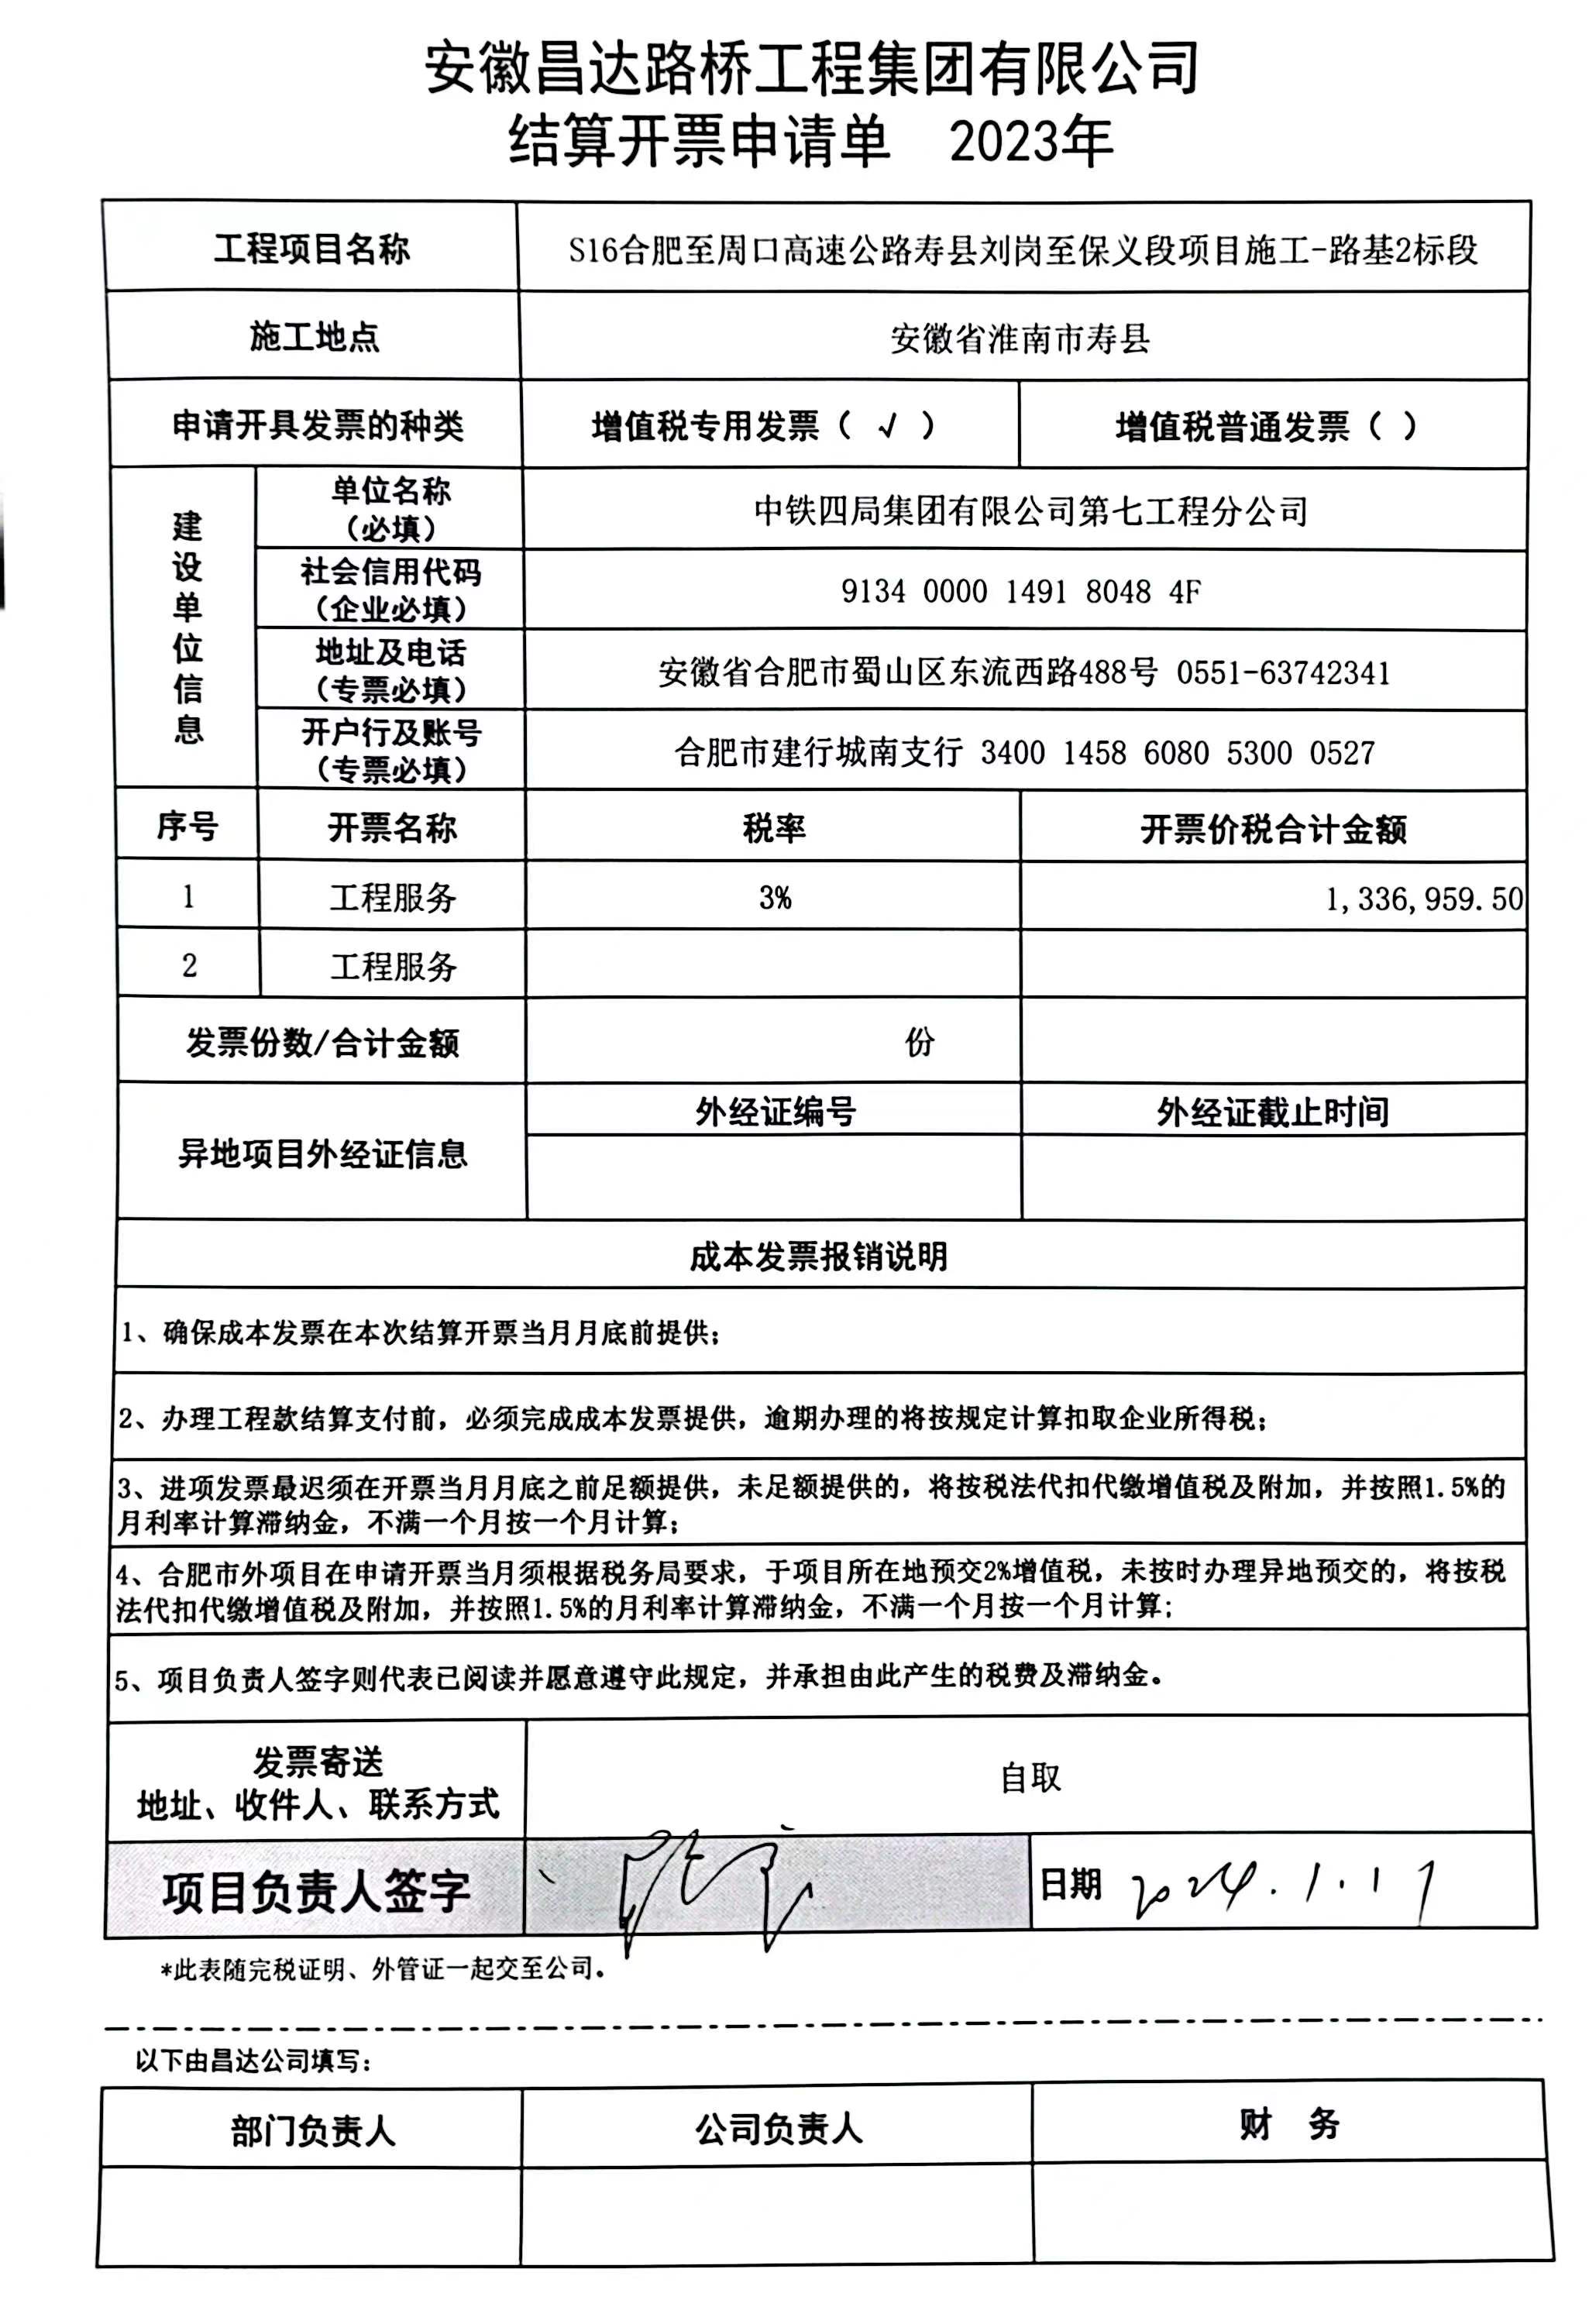 安徽昌达路桥工程集团有限公司
结算开票申请单 2023年
工程项目名称 S16合肥至周口高速公路寿县刘岗至保义段项目施工-路基2标段
施工地点 安徽省淮南市寿县
申请开具发票的种类 增值税专用发票（ √ ） 增值税普通发票（ ）
建设单位信息
单位名称
（必填）
中铁四局集团有限公司第七工程分公司
社会信用代码
（企业必填）
9134 0000 1491 8048 4F
地址及电话
（专票必填）
安徽省合肥市蜀山区东流西路488号 0551-63742341
开户行及账号
（专票必填）
合肥市建行城南支行 3400 1458 6080 5300 0527
序号 开票名称 税率 开票价税合计金额
1 工程服务 3% 1,336,959.50
2 工程服务
发票份数/合计金额 份
异地项目外经证信息 外经证编号 外经证截止时间
成本发票报销说明
1、确保成本发票在本次结算开票当月月底前提供；
2、办理工程款结算支付前，必须完成成本发票提供，逾期办理的将按规定计算扣取企业所得税；
3、进项发票最迟须在开票当月月底之前足额提供，未足额提供的，将按税法代扣代缴增值税及附加，并按照1.5%的
月利率计算滞纳金，不满一个月按一个月计算；
4、合肥市外项目在申请开票当月须根据税务局要求，于项目所在地预交2%增值税，未按时办理异地预交的，将按税
法代扣代缴增值税及附加，并按照1.5%的月利率计算滞纳金，不满一个月按一个月计算；
5、项目负责人签字则代表已阅读并愿意遵守此规定，并承担由此产生的税费及滞纳金。
发票寄送
地址、收件人、联系方式
自取
项目负责人签字 日期 2024.1.17
*此表随完税证明、外管证一起交至公司。
以下由昌达公司填写：
部门负责人 公司负责人 财 务